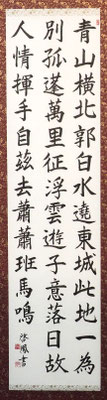 青山橫北郭白水遶東城此地一為
別孤蓬萬里征浮雲遊子意落日故
人情揮手自茲去蕭蕭班馬鳴
鳳書